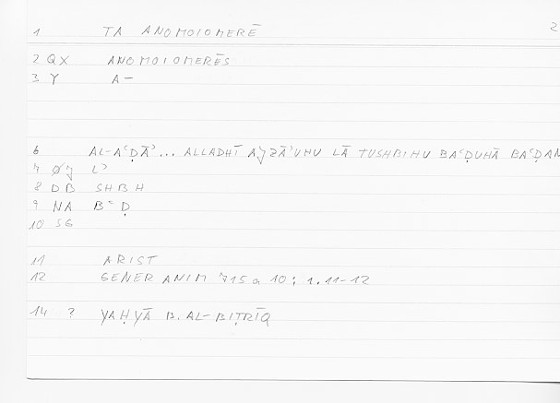 1 TA ANOMOIOMERĒ 2
2 QX ANOMOIOMERĒS
3 Y A-
6 AL-AʿḌĀʾ... ALLADHĪ AJZĀʾUHU LĀ TUSHBIHU BAʿḌUHĀ BAʿḌAN
7 ØJ Lʾ
8 DB SHBH
9 NA BʿḌ
10 SG
11 ARIST
12 GENER ANIM 715a10; 1.11-12
14 ? YAḤYĀ B. AL-BIṬRĪQ